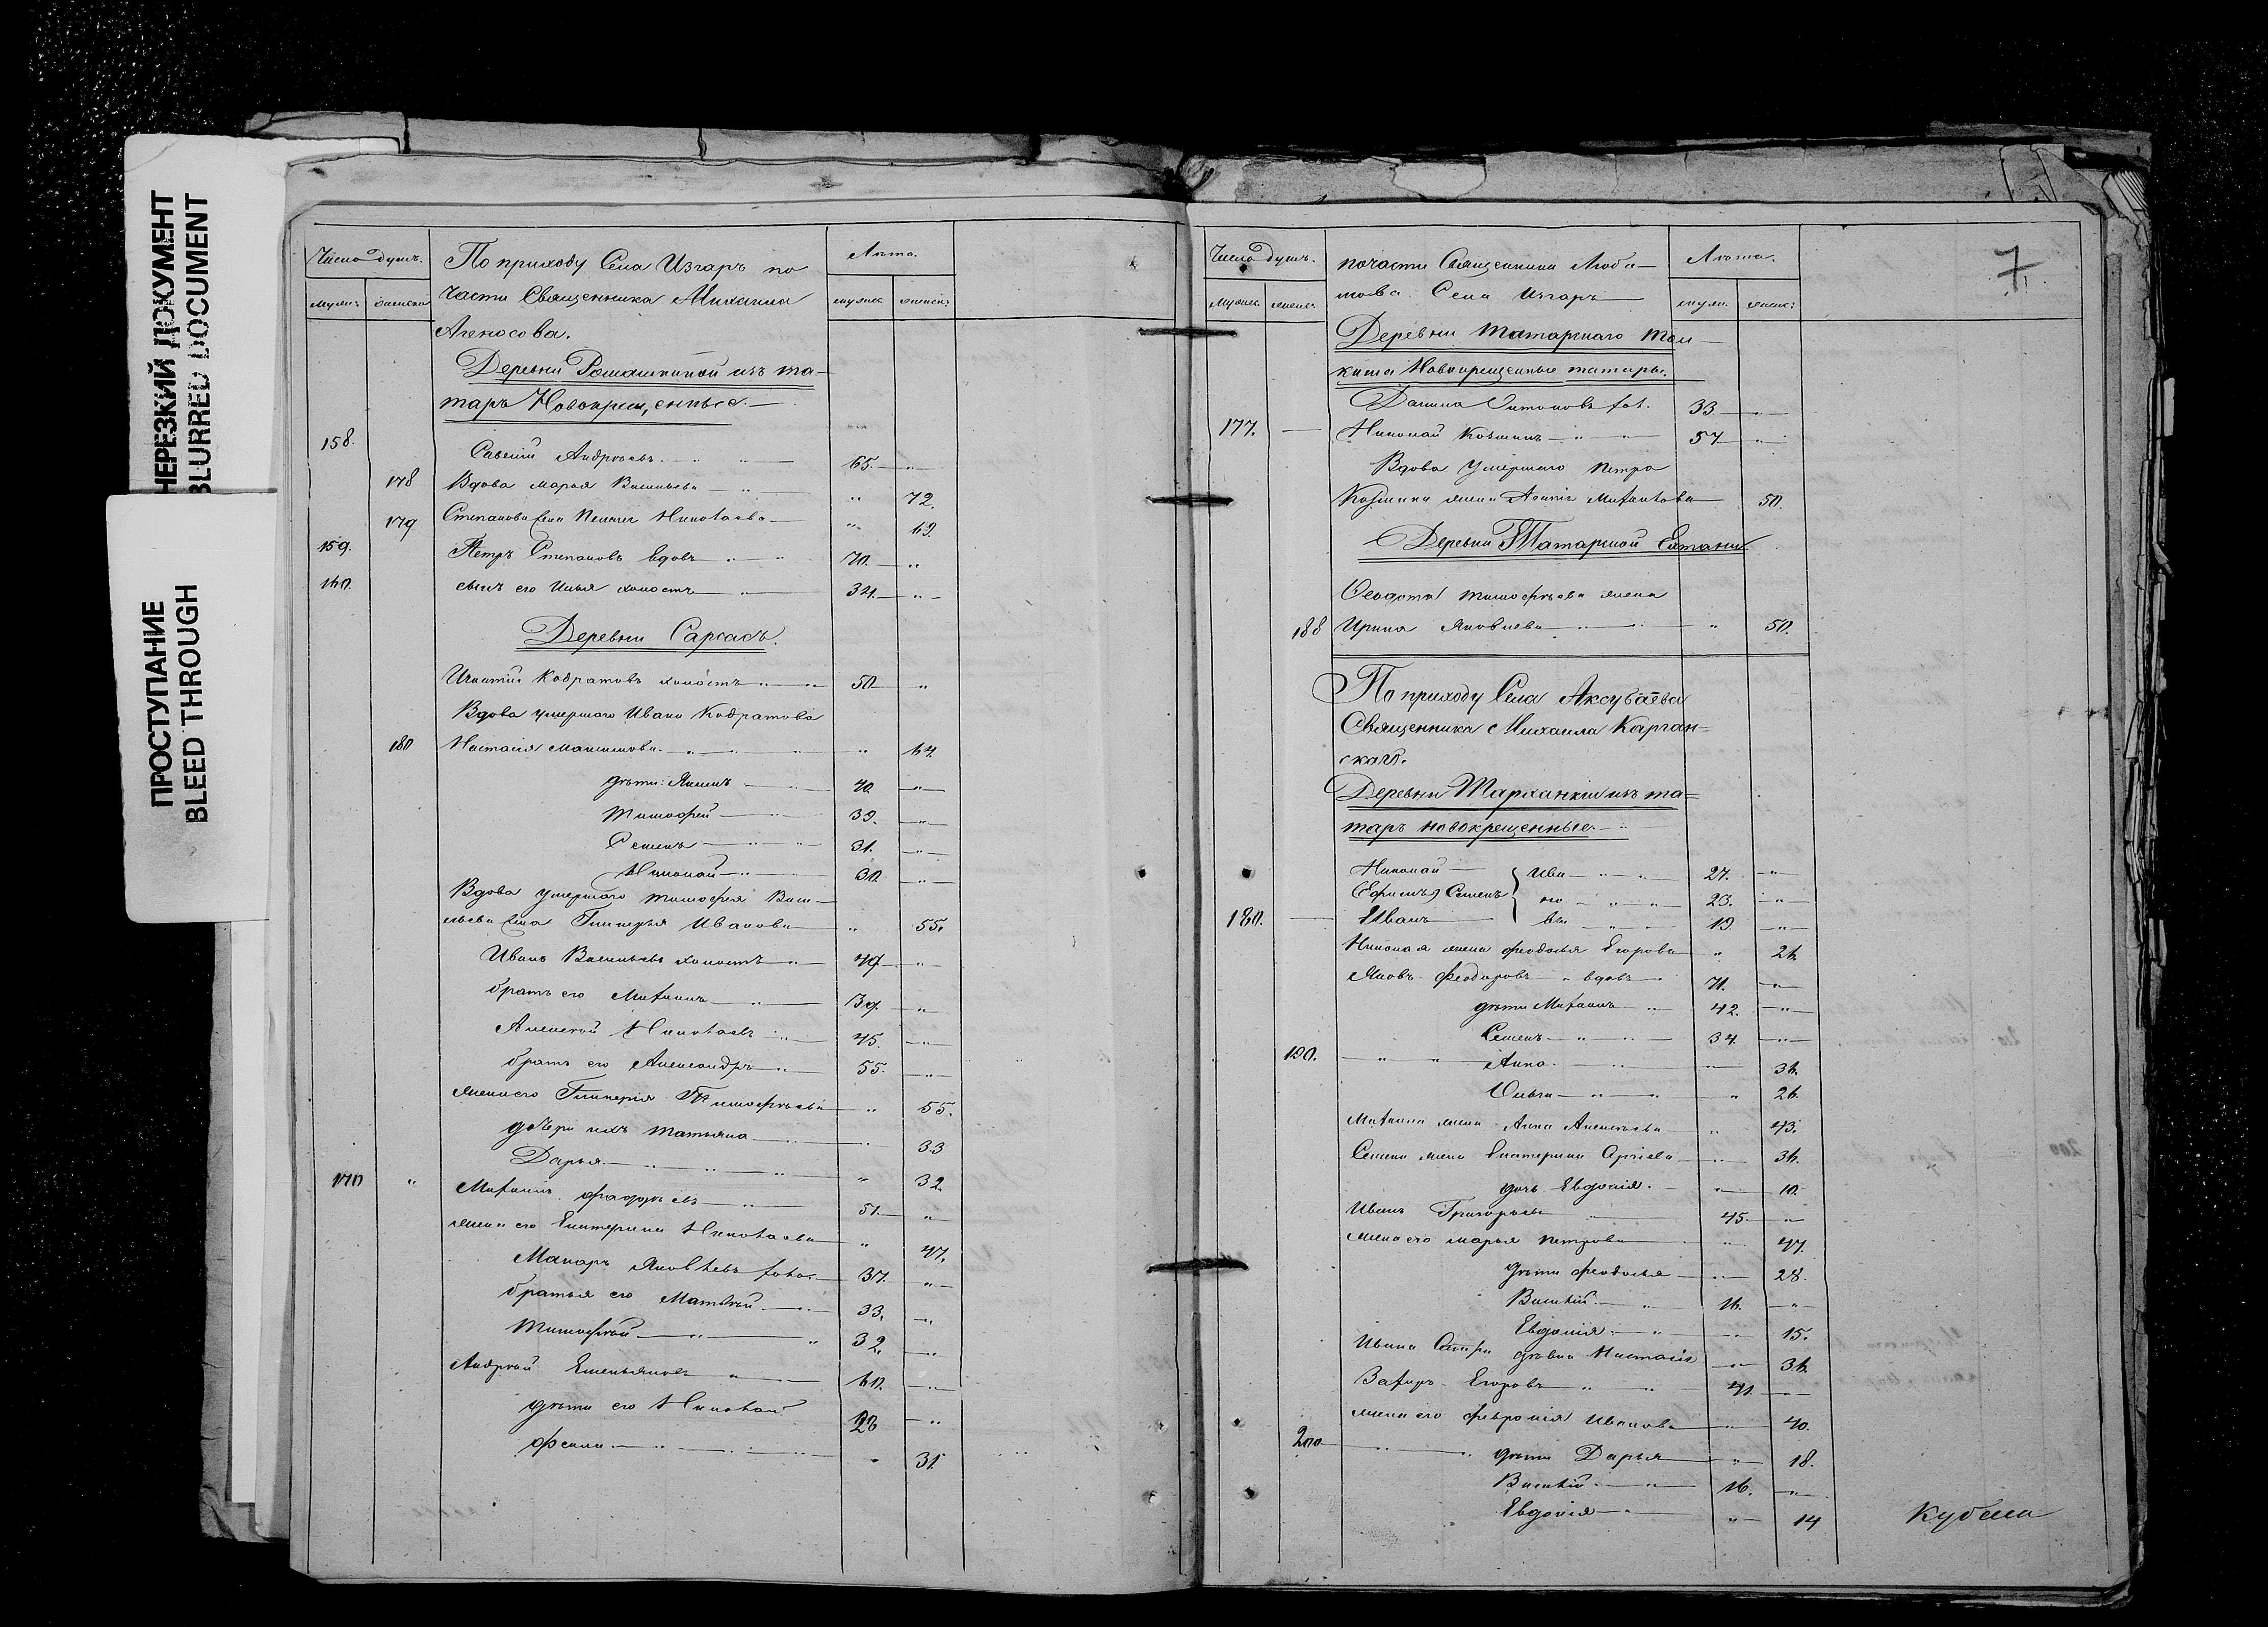 НЕРЕЗКИЙ ДОКУМЕНТ
BLURRED DOCUMENT
ПРОСТУПАНИЕ
BLEED THROUGH
Число душъ.
По приходу Села Изгаръ по
Лѣта.
мужес. женска
части Священника Михаила
мужеск женск:
Агносова.
Деревни Ромашкиной изъ та-
таръ Новокрещенные.
158. Савелій Андреевъ 65. "
178 Вдова марья Васильева " 72.
179 Степанова жена Николаева " 69.
159. Петръ Степановъ вдовъ 70. "
160. сынъ его Илья холостъ 34. "
Деревни Сарсасъ.
Игнатій Кодратовъ холостъ 50 "
Вдова умершаго Ивана Кодратова
180 Настасія Максимова " 64.
дѣти: Якимъ 40. "
Тимофей 39. "
Семенъ 31. "
Николай 30. "
Вдова умершаго Тимофея Васи-
льева жена Гликерья Иванова " 55.
Иванъ Васильевъ холостъ 49 "
братъ его Михаилъ 39. "
Алексѣй Николаевъ 45. "
братъ его Александръ 55. "
жена его Гликерія Тимофѣева " 55.
дочери ихъ татьяна 33
Дарья " 32.
170 " Михаилъ 51. "
жена его Екатерина Николаева " 47.
Макаръ Яковлевъ холос. 37. "
братья его Матвѣй 33. "
Тимофѣй 32. "
Андрѣй Емельяновъ 60. "
дѣти его Николай 28 "
Фекла " 31.
7.
Число душъ.
по части Священника Любо-
Лѣта.
мужеск. женск.
мова Села Изгаръ
муж. женск:
Деревни Татарскаго Тол-
киша Новокрещенные татары.
Данила Антоновъ хол. 33 "
177. Николай Козминъ 57 "
Вдова умершаго Петра
Козмина жена Михайлова 50.
Деревни Татарской
Ѳедота Тимофѣева жена
188 Ирина Яковлева " 50.
По приходу Села Аксубаева
Священника Михаила Карган-
скаго.
Деревни Тарханки изъ та-
таръ новокрещенные.
Николай Ива 27. "
Ефимъ Семенъ но 23. "
180. Иванъ вы 19. "
Николая жена Феодосья Егорова " 26.
Яковъ Феодоровъ вдовъ 71. "
дѣти Михаилъ 42. "
Семенъ 34. "
190. Анна 36.
Ольга " 26.
Михаила жена Анна Алексѣева " 43.
Семена жена Екатерина " 36.
дочь Евдокія. " 10.
Иванъ Григорьевъ 45. "
жена его марья петрова " 47.
дѣти Феодосья " 28.
Василій 16. "
Евдокія. " 15.
Ивана дѣвка Настасія " 36.
Захаръ Егоровъ 41. "
жена его Февронія Иванова " 40.
200 дѣти Дарья " 18.
Василій 16. "
Евдокія " 14